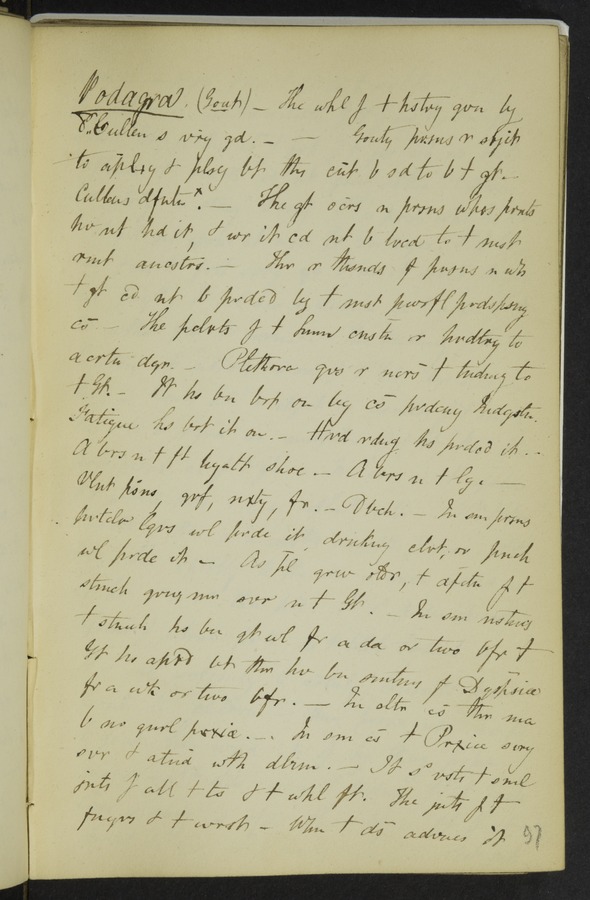 Podagra. (Gout) — The whl f + hstry gvn by
Cullen s vry gd. — — Gouty prsns r sbjct
to aplxy & plsy bt ths cnt b sd to b + gt. —
Cullens dfntn. — The gt ocrs n prsns whos prnts
hv nt hd it, & wr it cd nt b trcd to + mst
rmt ancstrs. — Thr r thsnds f prsns n wh
+ gt cd nt b prdcd by + mst pwrfl prdspsng
cs — The pclrts f + humn cnsttn r hrdtry to
a crtn dgr. — Plethora gvs r ncrs + tndncy to
+ Gt. — It hs bn brt on by cs prdcng Indgstn.
Fatigue hs brt it on. — Hrd rdng hs prdcd it. —
A brs n + ft by a tt shoe — A brs n + lg. —
Vlnt psns, grf, nxty, fr. — Dbch. — In sm prsns
prtclr lqrs wl prdc it, drnkng clrt, or punch
wl prdc it — As ppl grw oldr, + afctn f +
stmch grwng mr ovr n + Gt. — In sm nstncs
+ stmch hs bn qt wl fr a da or two bfr +
Gt hs aprd bt thr hv bn smtms f Dyspsia
fr a wk or two bfr. — In othr cs thr ma
b no gnrl prxia. — In sm cs + Prxia svry
svr & atnd wth dlrm. — It s vsts + sml
jnts f all + ts & + whl ft. The jnts f +
fngrs & + wrst — Whn + ds advncs it
97